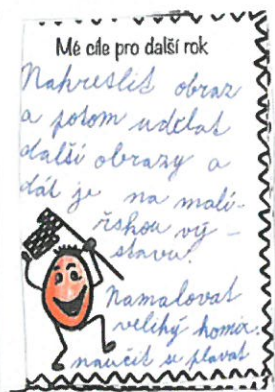 Mé cíle pro další rok
Nakreslit obraz
a potom udělat
další obrazy a
dát je na malí-
řskou vý-
stavu.
Namalovat
veliký komix.
naučit se plavat